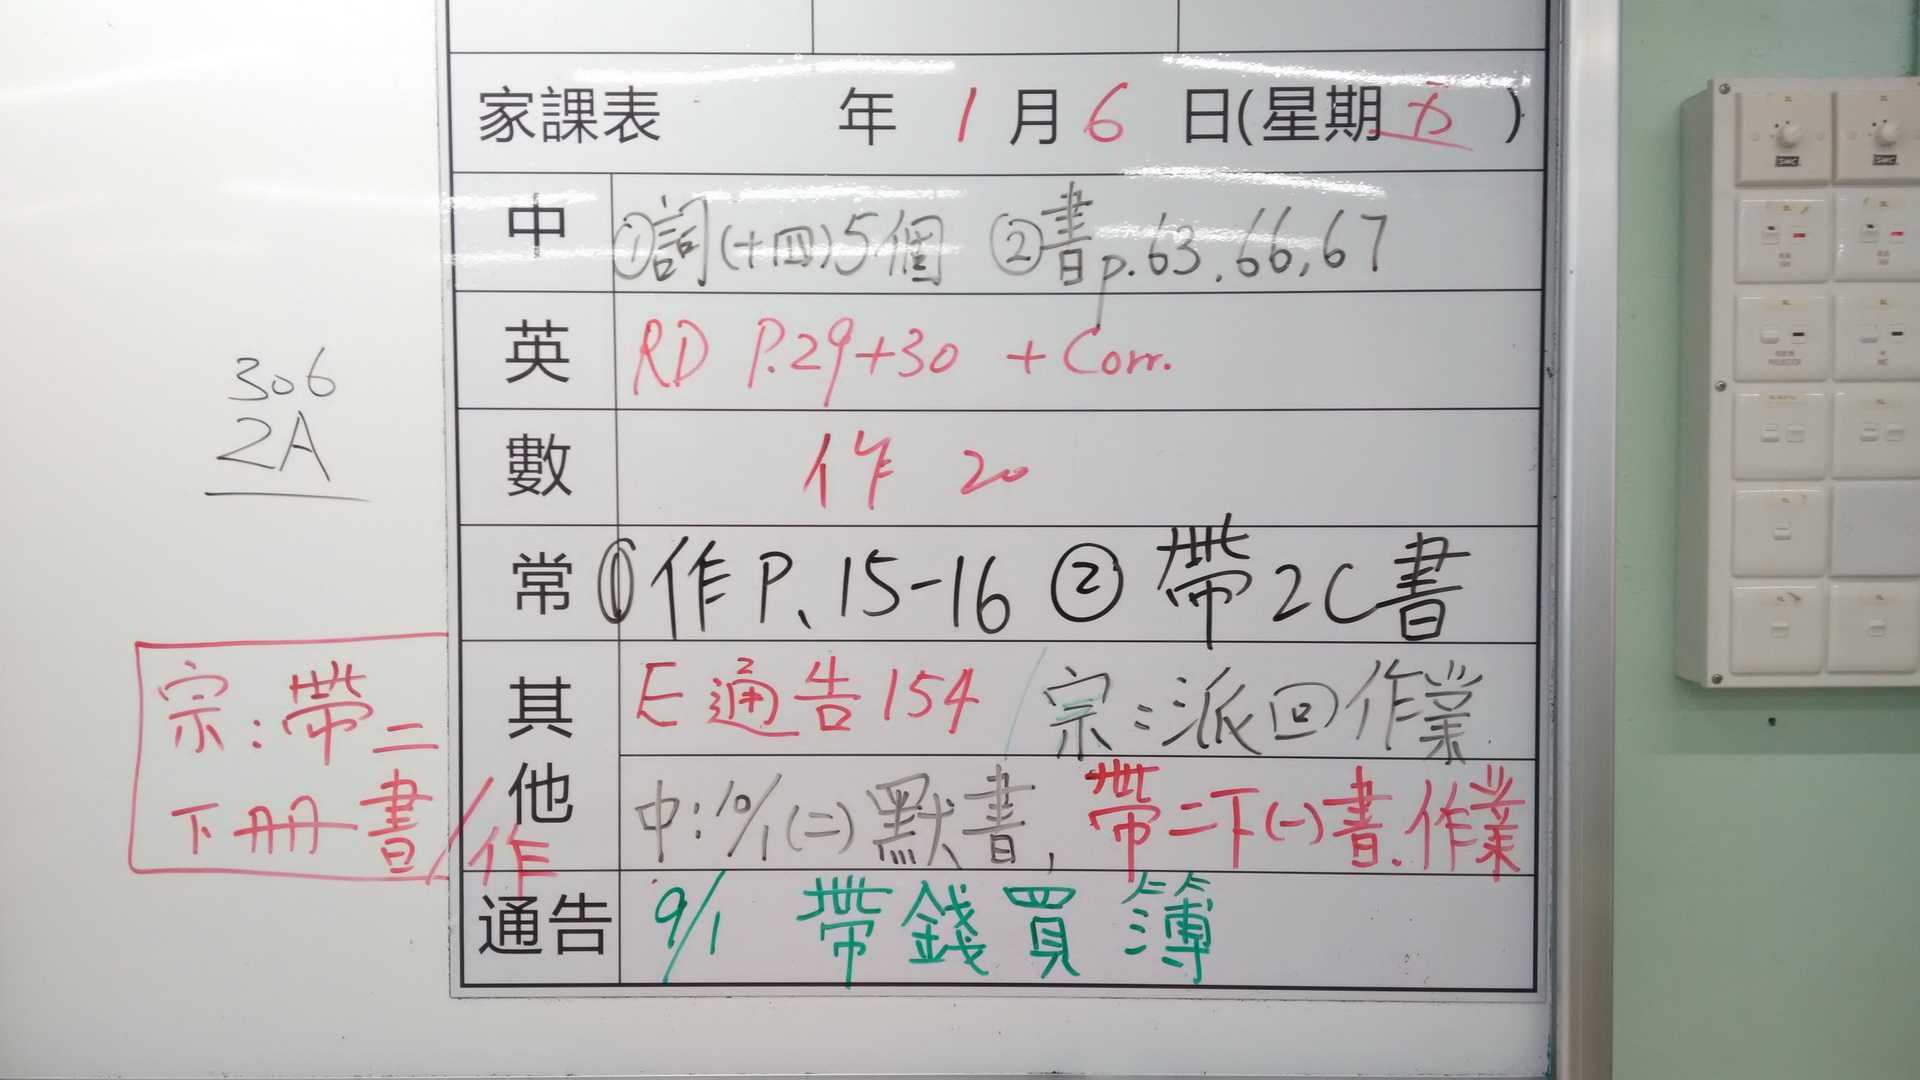 家課表 年 1 月 6 日(星期 五 )
中 ①詞(十四)5個 ②書p.63,66,67
英 RD P.29+30 + Corr.
數 作 20
常 ①作P.15-16 ②帶2C書
其他 E通告154 / 宗:派回作業
中:10/1(二)默書, 帶二下(一)書.作業
通告 9/1 帶錢買簿
306
2A
宗:帶二
下冊書/作